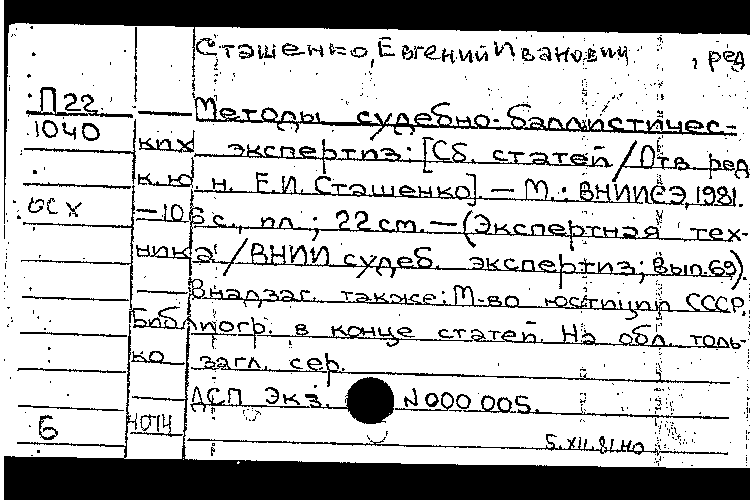 Сташенко, Евгений Иванович, ред
П22 Методы судебно-баллистичес-
1040 ких экспертиз: [Сб. статей / Отв. ред
к. ю. н. Е.И. Сташенко]. — М.: ВНИИСЭ, 1981.
осх — 106 с., ил.; 22 см. — (Экспертная тех-
ника / ВНИИ судеб. экспертиз; Вып. 69).
Внадзаг. также: М-во юстиции СССР.
Библиогр. в конце статей. На обл. толь-
ко загл. сер.
ДСП Экз. N000 005.
Б
5.XII.81.НО